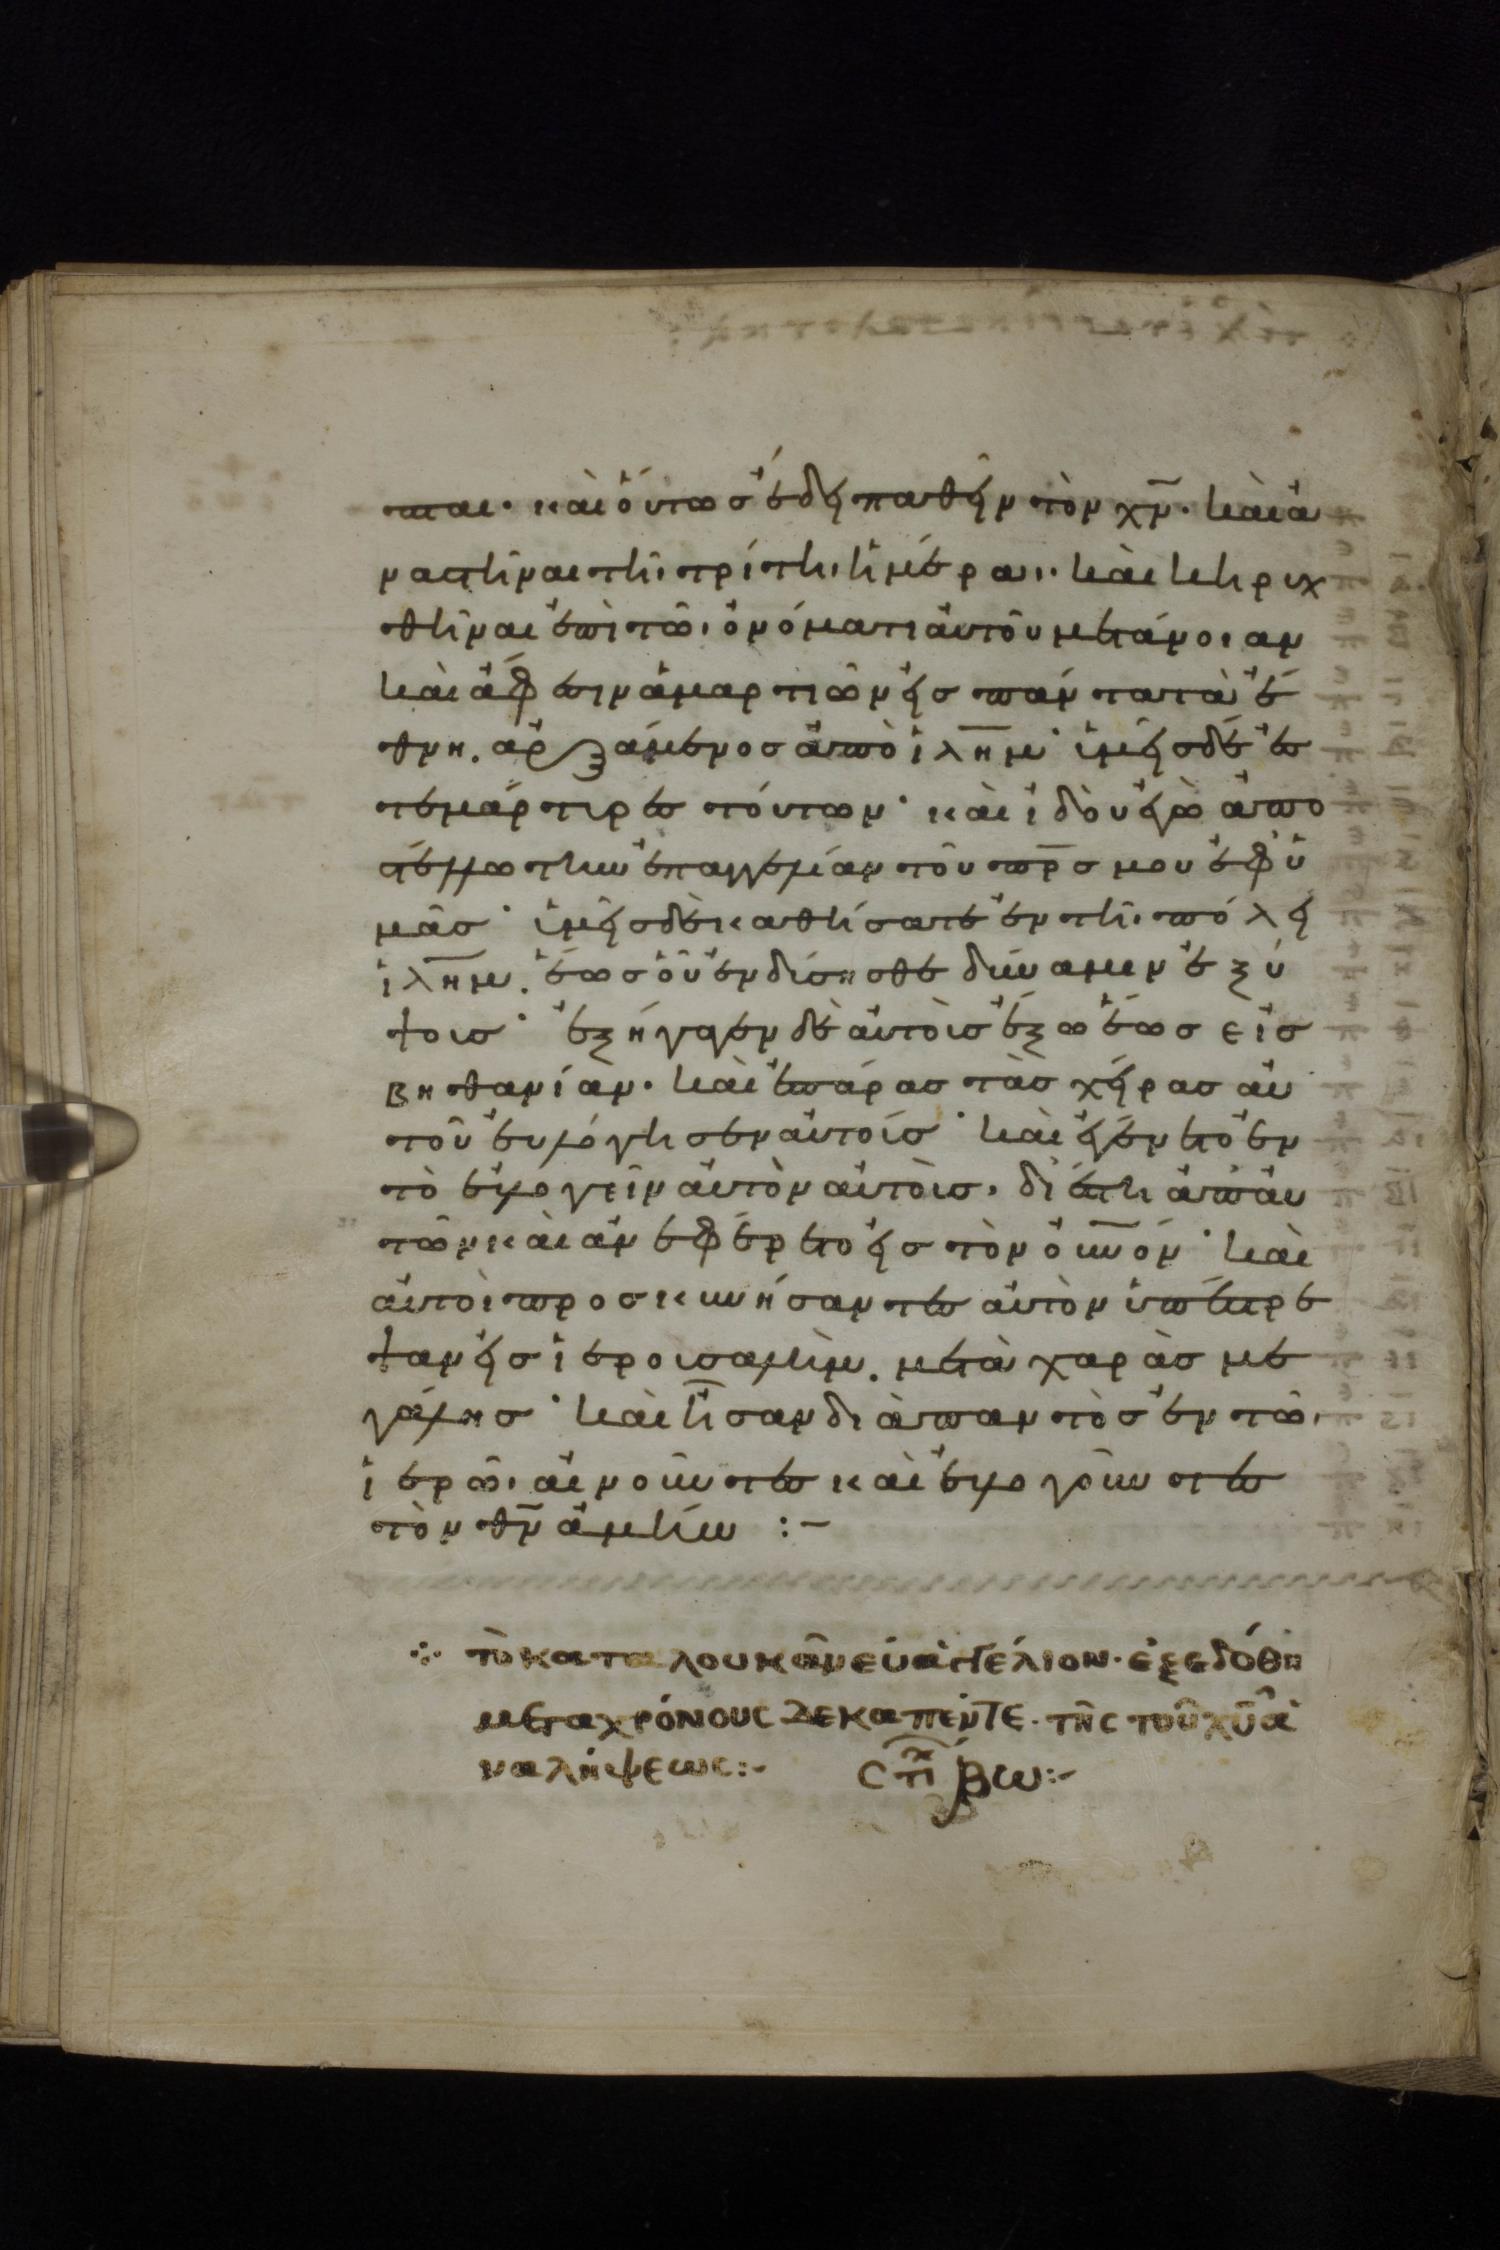 πται· καὶ οὕτως ἔδει παθεῖν τὸν χν̅· καὶ ἀ
ναστῆναι τῆι τρίτηι ἡμέραι· καὶ κηρυχ
θῆναι ἐπὶ τῶι ὀνόματι αὐτοῦ μετάνοιαν
καὶ ἄφεσιν ἁμαρτιῶν εἰς πάντα τὰ ἔ
θνη. ἀρξάμενος ἀπὸ ἰλη̅μ· ὑμεῖς δέ ἐσ
τε μάρτυρες τούτων· καὶ ἰδοὺ ἐγὼ ἀπο
στέλλω τὴν ἐπαγγελίαν τοῦ πρ̅ς μου ἐφ ὑ
μᾶς· ὑμεῖς δὲ καθήσατε ἐν τῆι πόλει
ἰλη̅μ. ἕως οὗ ἐνδύσησθε δύναμιν ἐξ ὕ
ψους· ἐξήγαγεν δὲ αὐτοὺς ἔξω ἕως εἰς
βηθανίαν· καὶ ἐπάρας τὰς χεῖρας αὐ
τοῦ ἐυλόγησεν αὐτούς· καὶ ἐγένετο ἐν
τὸ ἐυλογεῖν αὐτὸν αὐτοὺς. διέστη ἀπ αὐ
τῶν καὶ ἀνεφέρετο εἰς τὸν οὐν̅όν· καὶ
αὐτοὶ προσκυνήσαντες αὐτὸν ὑπέστρε
ψαν εἰς ἱερουσαλὴμ. μετὰ χαρᾶς με
γάλης· καὶ ἦσαν διὰ παντὸς ἐν τῶι
ἱερῶι αἰνοῦντες καὶ ἐυλογοῦντες
τὸν θν̅ ἀμήν :–
⁘ τὸ κατα λουκᾶν εὐαγγέλιον· ἐξεδόθη
μετα χρόνους δεκαπέντε. τῆς τοῦ χυ̅ ἀ
ναλήψεως:– στιχ ͵βω:–